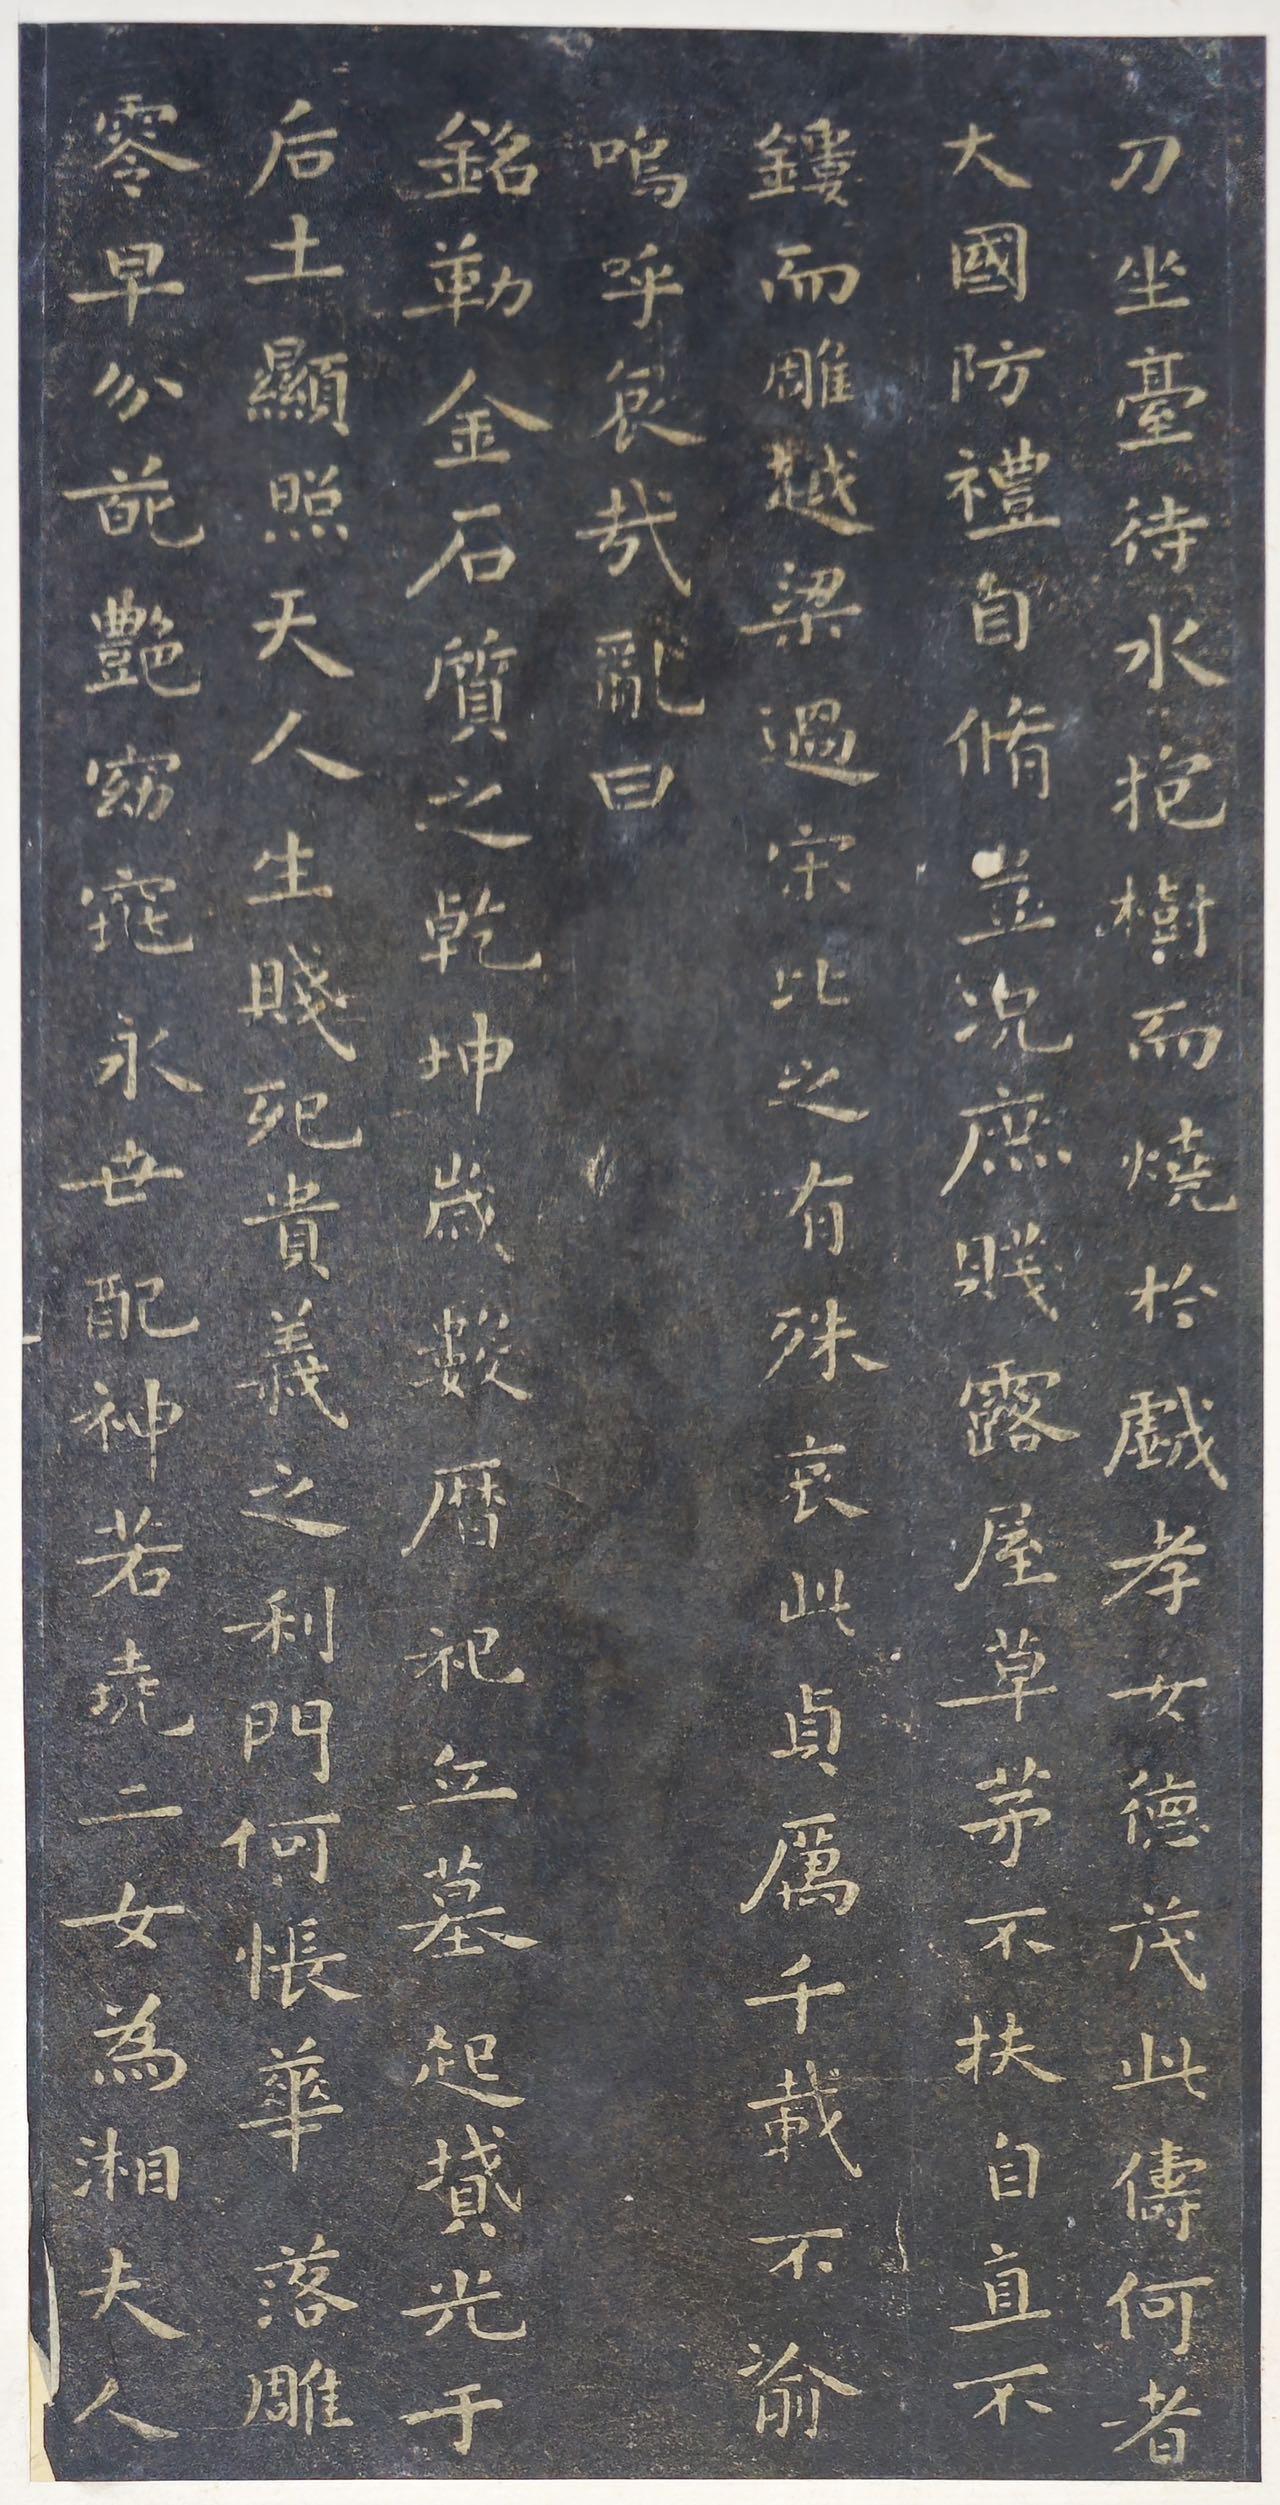 刀坐臺待水抱樹而燒於戲孝女德茂此儔何者
大國防禮自脩豈況庶賤露屋草茅不扶自直不
鏤而雕越梁過宋比之有殊哀此貞厲千載不渝
嗚呼哀哉亂曰
銘勒金石質之乾坤歲數曆祀立墓起墳光于
后土顯照天人生賤死貴義之利門何悵華落雕
零早分葩艷窈窕永世配神若堯二女為湘夫人